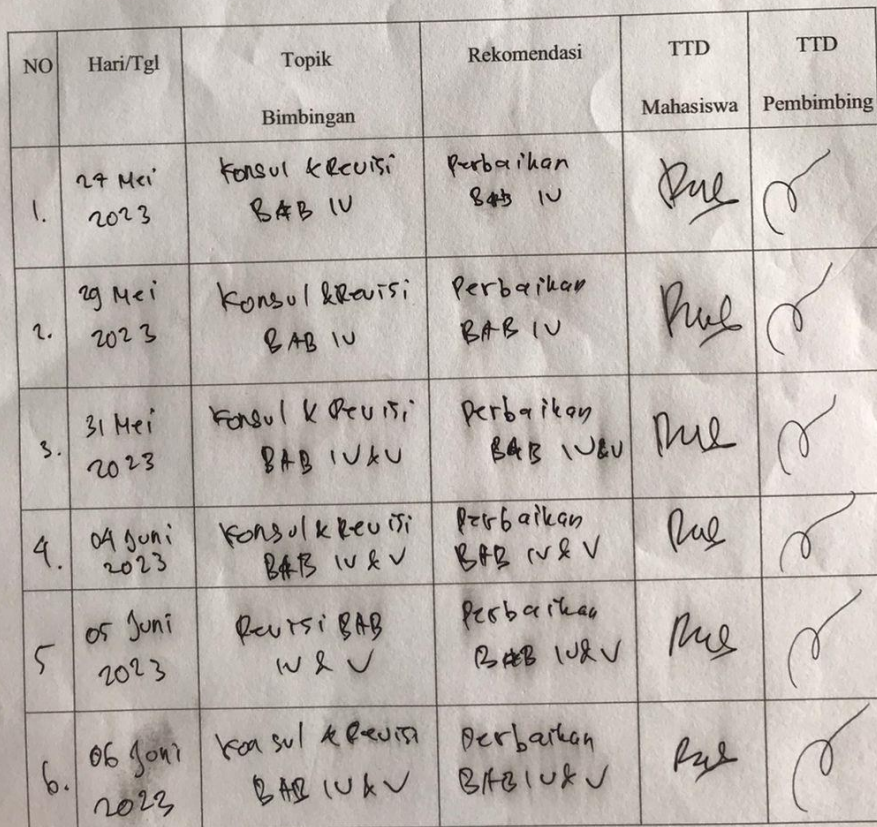 NO Hari/Tgl Topik Bimbingan Rekomendasi TTD Mahasiswa TTD Pembimbing
1. 27 Mei 2023 Konsul & Revisi BAB IV Perbaikan Bab IV
2. 29 Mei 2023 Konsul & Revisi BAB IV Perbaikan BAB IV
3. 31 Mei 2023 Konsul & Revisi BAB IV & V Perbaikan BAB IV & V
4. 04 Juni 2023 Konsul & Revisi BAB IV & V Perbaikan BAB IV & V
5 05 Juni 2023 Revisi BAB IV & V Perbaikan BAB IV & V
6. 06 Juni 2023 Konsul & Revisi BAB IV & V Perbaikan BAB IV & V